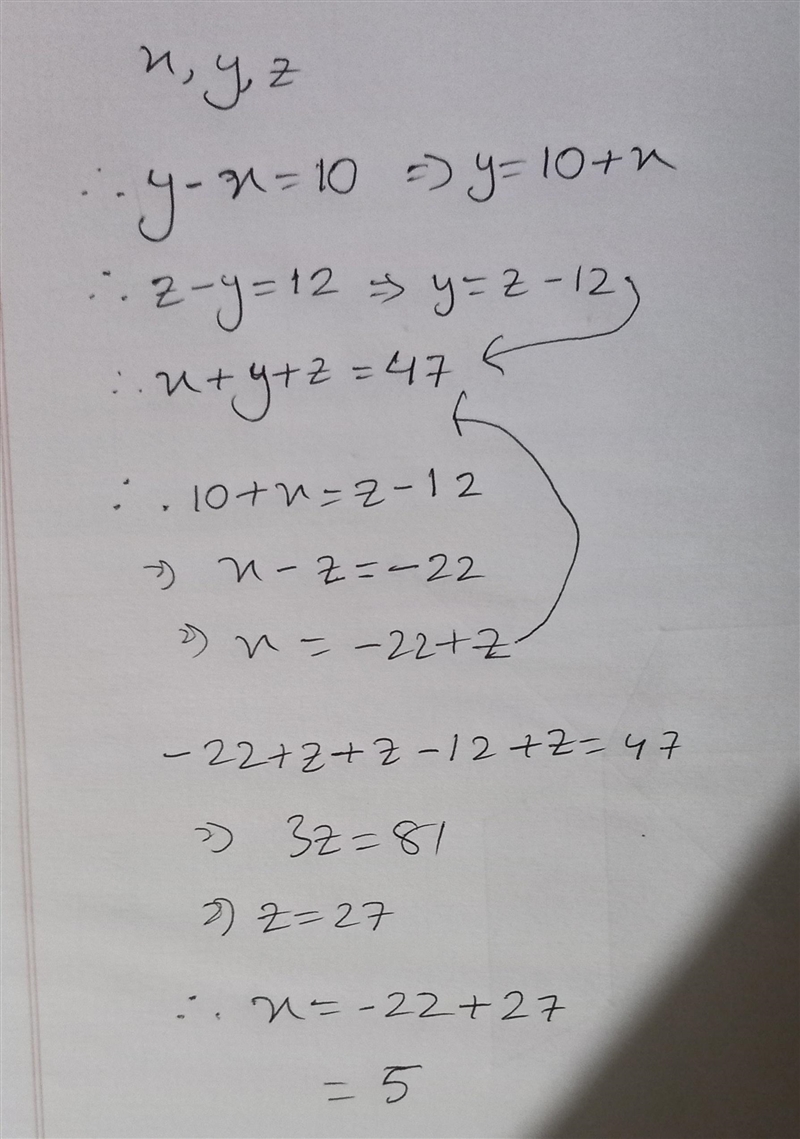 x, y, z
∴ y - x = 10 ⇒ y = 10 + x
∴ z - y = 12 ⇒ y = z - 12
∴ x + y + z = 47
∴ 10 + x = z - 12
⇒ x - z = -22
⇒ x = -22 + z
-22 + z + z - 12 + z = 47
⇒ 3z = 81
⇒ z = 27
∴ x = -22 + 27
= 5